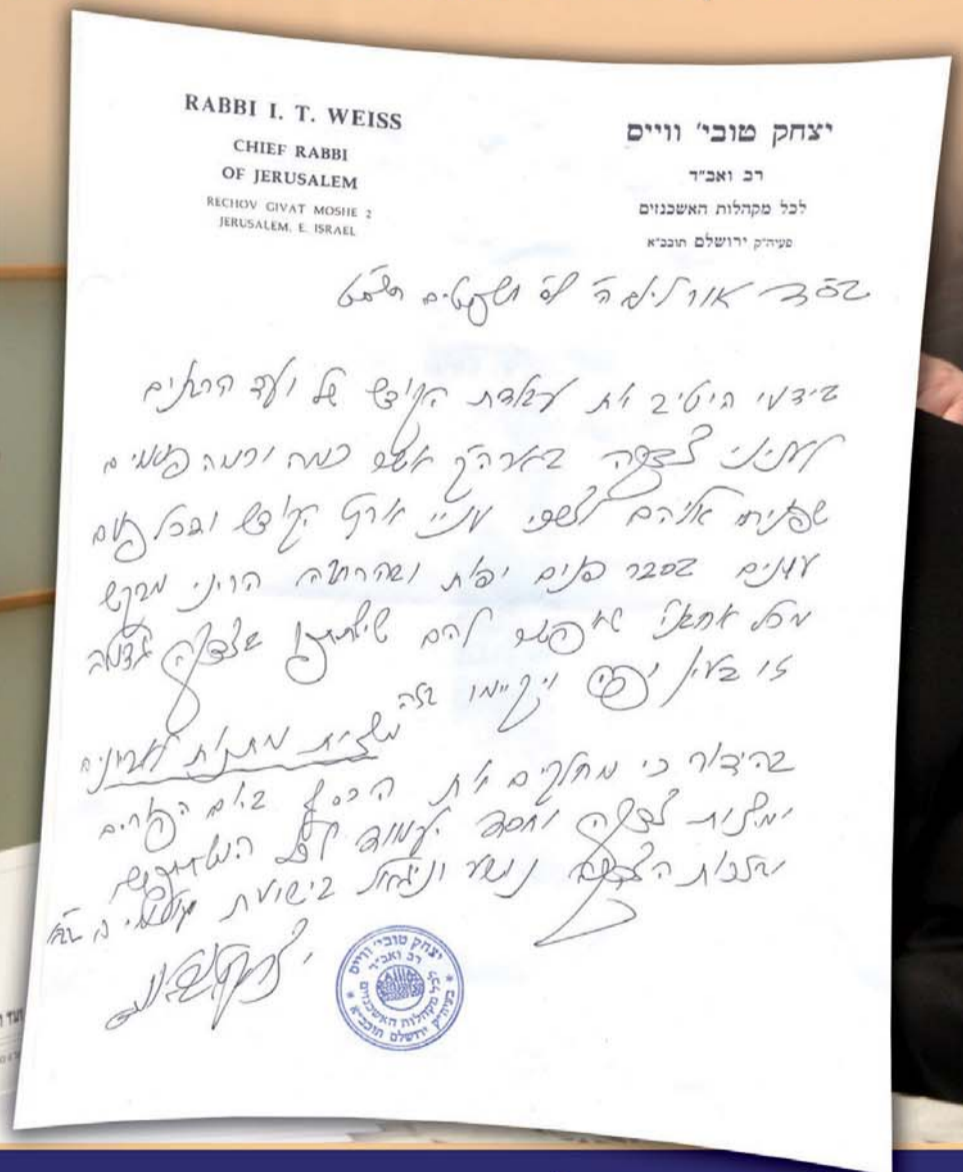 RABBI I. T. WEISS
CHIEF RABBI
OF JERUSALEM
RECHOV GIVAT MOSHE 2
JERUSALEM. E. ISRAEL
יצחק טובי' ווייס
רב ואב"ד
לכל מקהלות האשכנזים
פעיה"ק ירושלם תובב"א
בס"ד אור ליום ה' לס' משפטים
בידעי היטיב את עבודת הקודש של ועד הרבנים
לעניני צדקה בארה"ק אשר כמה וכמה פעמים
שפניתי אליהם לצרכי עניי ארץ הקודש ובכל פעם
עונים בסבר פנים יפות ובהרחבה הריני מבקש
מכל אחב"י שאפשר להם שישתתפו בצדקה גדולה
זו בעין יפה ויקיימו בזה מצות מתנות לאביונים
בהידור כי מחלקים את הכסף ביום הפורים
וזכות צדקה וחסד יעמוד לכל המשתתפים
ובזכות הצדקה נושע וניגאל בישועת
יצחק טובי' ווייס
רב ואב"ד
לכל מקהלות האשכנזים
בעיה"ק ירושלם תובב"א